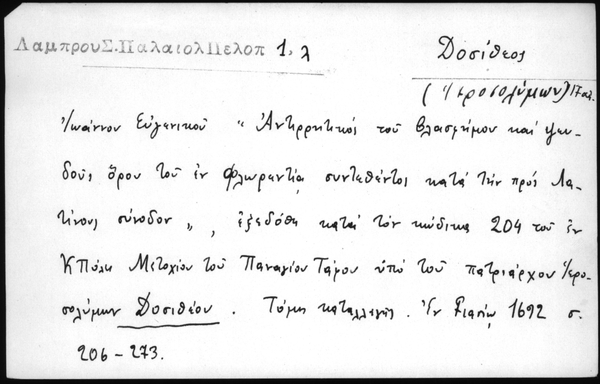 ΛαμπρουΣ.ΠαλαιολΠελοπ 1, λ
Δοσίθεος
(Ἱεροσολύμων) 17 αἰ.
Ἰωάννου Εὐγενικοῦ "Ἀντιρρητικός τοῦ βλασφήμου καί ψευ-
δοῦς ὅρου τοῦ ἐν Φλωρεντίᾳ συντεθέντος κατά τήν πρός Λα-
τίνους σύνοδον", ἐξεδόθη κατά τόν κώδικα 204 τοῦ ἐν
ΚΠόλει Μετοχίου τοῦ Παναγίου Τάφου ὑπό τοῦ πατριάρχου Ἱερο-
σολύμων Δοσιθέου. Τόμος καταλλαγῆς. Ἐν Γιασίῳ 1692 σ.
206-273.